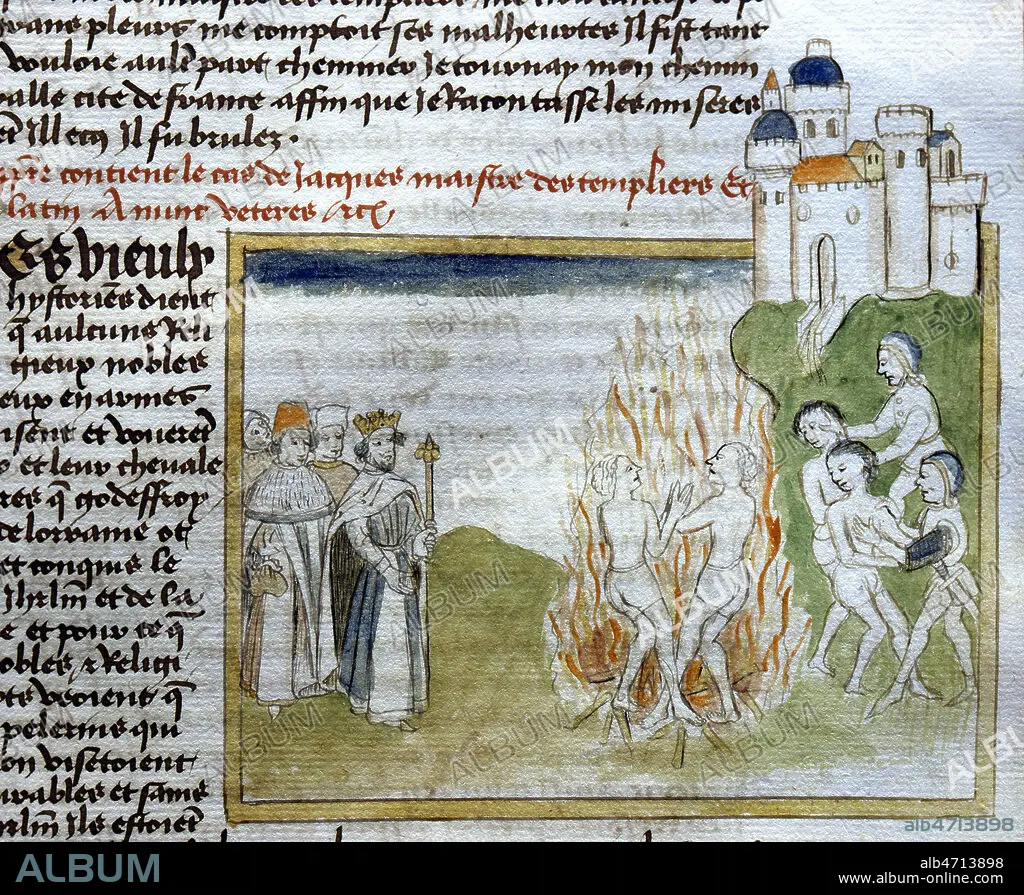 pleurs me comptoit ses malheurtes Il fist tant
vouloie aul'e part chemmer Je tournay mon chemin
alle cite de france affin que Je Racontasse les miseres
Et Illecq Il fu brulez .
contient le cas de Jacques maistre des templiers Et
latin A munt veteres
vieulx
hystoriens dient
q̄ aulcuns Reli
gieux nobles
eux en armes
et vouerēt
et leur chevale
res q̄ godeffroy
de lorraine ot
et conquis le
Jhrlm̄ et de la
e et pour ce q̄
nobles & Religi
ots veoient q̄
pelerins qui
on visetoient
urables et sains
hrlm̄ Ils estoiēt
ALBUM
alb4713898
ALBUM
alb4713898
www.album-online.com